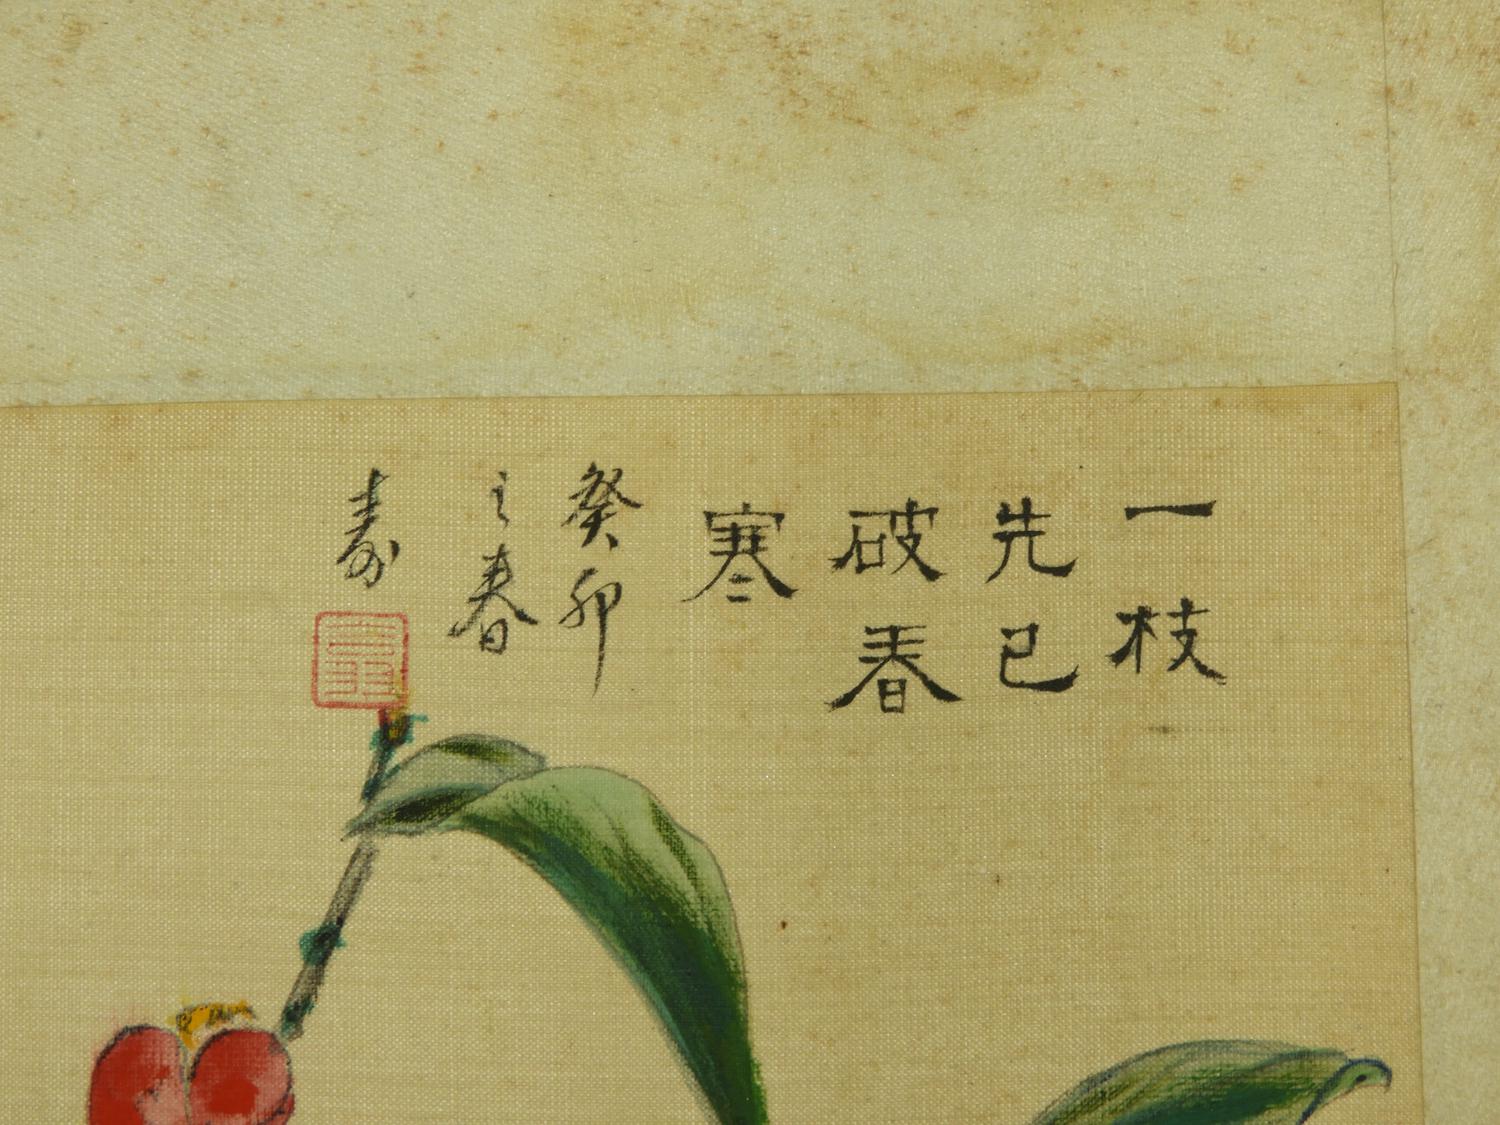 一枝
先已
破春
寒
癸卯
之春
壽